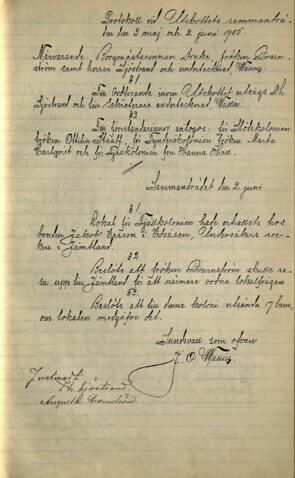 Protokoll vid Utskottets sammanträ-
den den 3 maj och 2 juni 1905.
Närvarande: Borgmästarinnan Arake, fröken Qvarn-
ström samt herrar Sjöstrand och undertecknad, Wallin.
§1.
Till ordförande inom Utskottet utsågs Th.
Sjöstrand och till sekreterare undertecknad, Wallin
§2
Till föreståndarinnor antogos: för Stödekolonien
fröken Ottilia Staaff, för Tynderökolonien fröken Märta
Carlqvist och för Fjällkolonien frk Hanna Hall.
Sammanträdet den 2 juni
§1.
Lokal för Fjällkolonien hade erhållits hos
bonden Jakob Ersson i Edsåsen, Undersåkers soc-
ken i Jämtland.
§2.
Beslöts att fröken Qvarnström skulle re-
sa upp till Jämtland för att närmare ordna lokalfrågan.
§3.
Beslöts att till denna koloni utsända 17 barn,
om lokalen medgåfve det.
Sundsvall som ofvan
J. O. Wallin
Justeradt:
Th. Sjöstrand
Augusta